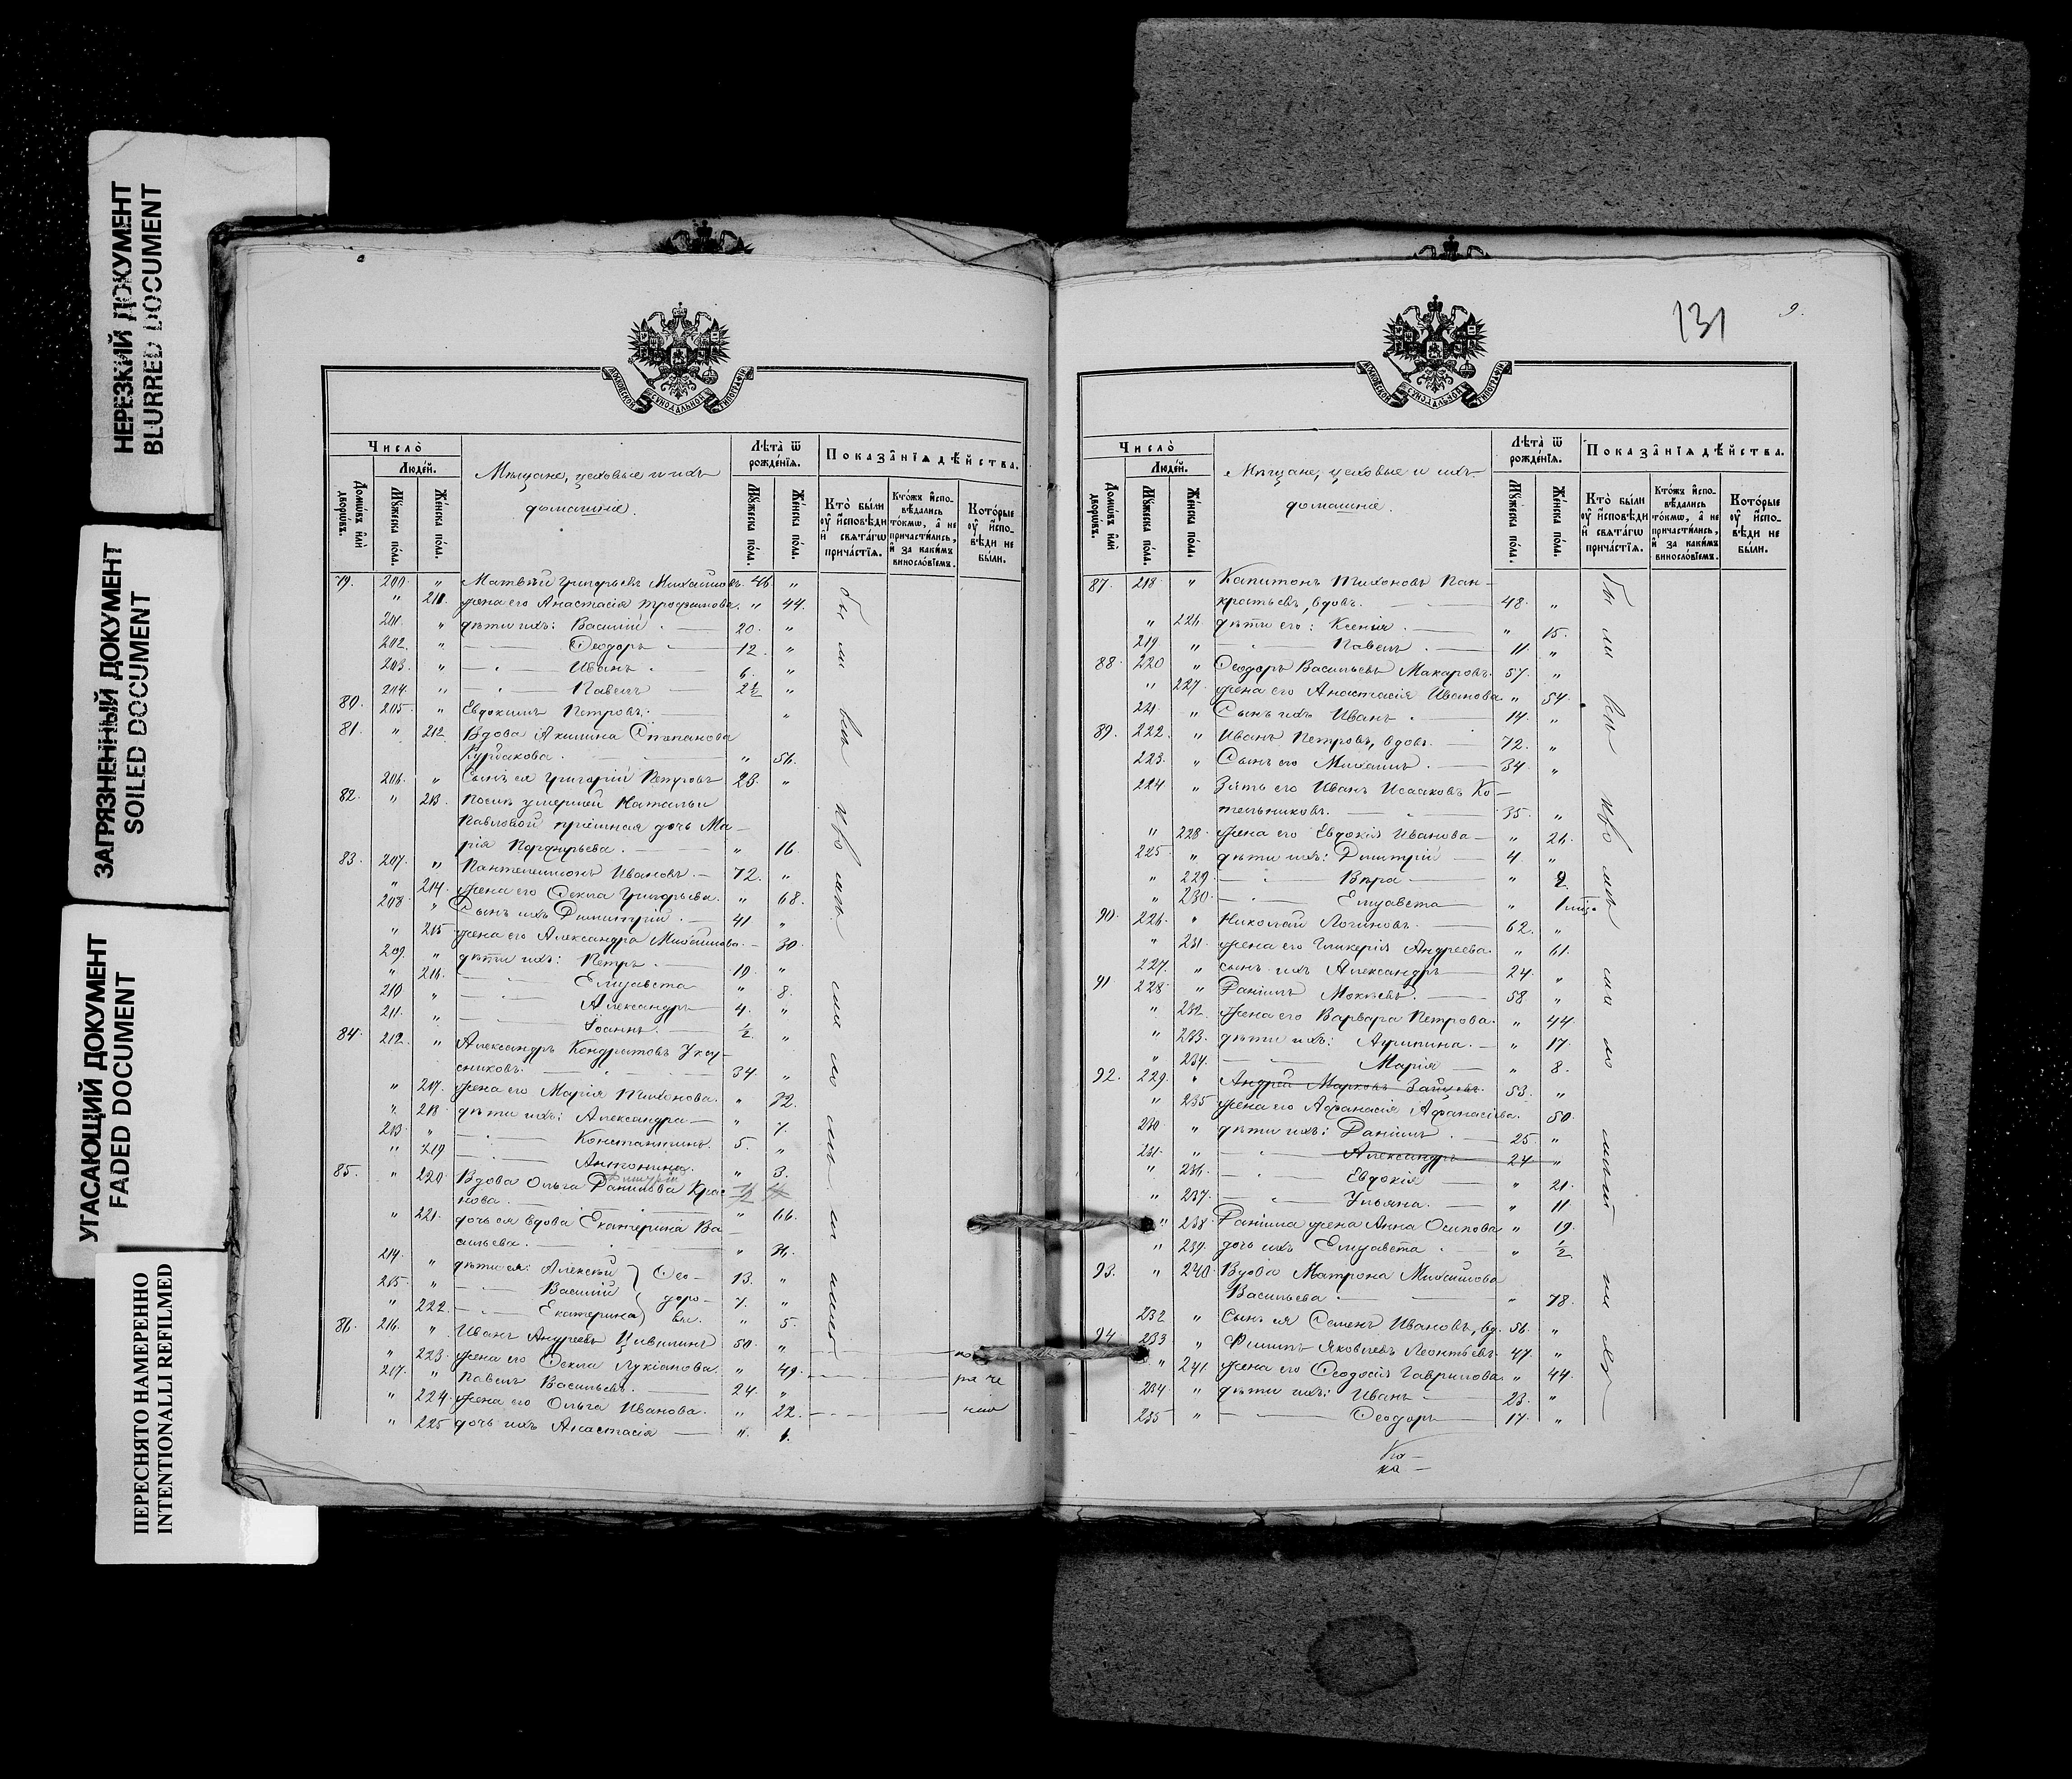 НЕРЕЗКИЙ ДОКУМЕНТ
BLURRED DOCUMENT
ЗАГРЯЗНЕННЫЙ ДОКУМЕНТ
SOILED DOCUMENT
УГАСАЮЩИЙ ДОКУМЕНТ
FADED DOCUMENT
ПЕРЕСНЯТО НАМЕРЕННО
INTENTIONALLI REFILMED
МОСКОВСКОЙ СѴНОДАЛЬНОЙ ТИПОГРАФІИ
Число̀
Люде́й.
Домѡ́въ и҆лѝ дворѡ́въ.
Мꙋ́жеска по́ла.
Же́нска по́ла.
Мѣщане, цеховые и ихъ
домашніе.
Лѣта̀ ѿ рожде́нїѧ.
Мꙋ́жеска по́ла.
Же́нска по́ла.
Показа̑нїѧ дѣ́йства.
Кто̀ бы́ли ᲂу҆ и҆сповѣ́ди и҆ свѧта́гѡ прича́стїѧ.
Кто́жъ и҆сповѣ́дались то́кмѡ, а҆ не причасти́лись, и҆ за каки́мъ виносло́вїемъ.
Кото́рые ᲂу҆ и҆сповѣ́ди не бы́ли.
79. 200. " Матвѣй Григорьевъ Михайловъ. 46 "
" 211. жена его Анастасія Трофимова. " 44.
201. " дѣти ихъ: Василій 20. "
202. " Ѳеодоръ 12. "
203. " Иванъ 6. "
204. " Павелъ 2½ "
80. 205. " Евдокимъ Петровъ. "
81. " 212 Вдова Акилина Степанова
Курбакова. " 56.
206. " Сынъ ея Григорій Петровъ 23. "
82. " 213. Послѣ умершей Натальи
Павловой пріемная дочь Ма-
рія Порфирьева. " 16
83. 207. " Пантелеимонъ Ивановъ. 72. "
" 214. жена его Ѳекла Григорьева. " 68.
208. " Сынъ ихъ Димитрій. 41 "
" 215 жена его Александра Михайлова. 30.
209. " дѣти ихъ: Петръ. 10. "
" 216. Елизавета " 8.
210 " Александръ 4. "
211. " Іоаннъ. ½. "
84. 212. " Александръ Кондратовъ
сниковъ. 34. "
" 217. жена его Марія Тихонова. " 32.
" 218. дѣти ихъ: Александра " 7.
213. " Константинъ. 5. "
" 219 Антонина. " 3.
85. " 220 Вдова Ольга Данилова Крас-
нова. " 66.
" 221. дочь ея вдова Екатерина Ва-
сильева.
214. " дѣти ея: Алексѣй } Ѳео- 13. "
215. " Василій доро- 7. "
" 222. Екатерина) вы. " 5.
86. 216. " Иванъ Андреевъ Цивилинъ 50. "
" 223. жена его Ѳекла Лукіанова. " 49.
217. " Павелъ Васильевъ. 24. "
" 224. жена его Ольга Иванова. " 22.
" 225 дочь ихъ Анастасія " 1.
131
9.
МОСКОВСКОЙ СѴНОДАЛЬНОЙ ТИПОГРАФІИ
Число̀
Люде́й.
Домѡ́въ и҆лѝ дворѡ́въ.
Мꙋ́жеска по́ла.
Же́нска по́ла.
Мѣщане, цеховые и ихъ
домашніе.
Лѣта̀ ѿ рожде́нїѧ.
Мꙋ́жеска по́ла.
Же́нска по́ла.
Показа̑нїѧ дѣ́йства.
Кто̀ бы́ли ᲂу҆ и҆сповѣ́ди и҆ свѧта́гѡ прича́стїѧ.
Кто́жъ и҆сповѣ́дались то́кмѡ, а҆ не причасти́лись, и҆ за каки́мъ виносло́вїемъ.
Кото́рые ᲂу҆ и҆сповѣ́ди не бы́ли.
87. 218. " Капитонъ Тихоновъ Пан-
кратьевъ, вдовъ. 48. "
" 226. дѣти его: Ксенія. " 15.
219 " Павелъ 11. "
88. 220 " Ѳеодоръ Васильевъ Макаровъ. 57. "
" 227. жена его Анастасія Иванова " 54.
221. " Сынъ ихъ Иванъ. 14. "
89. 222. " Иванъ Петровъ, вдовъ. 72. "
223. " Сынъ его Михаилъ. 34. "
224 " Зять его Иванъ Исааковъ Ко-
тельниковъ. 35. "
" 228. жена его Евдокія Иванова " 26.
225 " дѣти ихъ: Димитрій 4 "
" 229. Вѣра " 2.
" 230. Елизавета "
90. 226. " Николай Логиновъ. 62. "
" 231. жена его Гликерія Андреева. " 61.
227. " сынъ ихъ Александръ 24. "
91 228. " Даніилъ Мокѣевъ. 58 "
" 232. жена его Варвара Петрова. " 44.
" 233. дѣти ихъ: Агрипина. " 17.
" 234. Марія " 8.
92. 229. " Андрей Марковъ Зайцевъ. 53. "
" 235 жена его Афанасія Афанасьева. 50.
230. " дѣти ихъ: Даніилъ. 25. "
231. " Александръ 24 "
" 236. Евдокія " 21.
" 237. Ульяна. " 11.
" 238. Даніила жена Анна Осипова " 19.
" 239. дочь ихъ Елизавета " ½
93. " 240. Вдова Матрона Михайлова
Васильева. " 78.
232 " Сынъ ея Семенъ Ивановъ, вд. 56. "
94 233 " Филиппъ Яковлевъ Леонтьевъ. 47. "
" 241. жена его Ѳеодосія Гаврилова. " 44.
234 " дѣти ихъ: Иванъ 23. "
235 " Ѳеодоръ 17. "